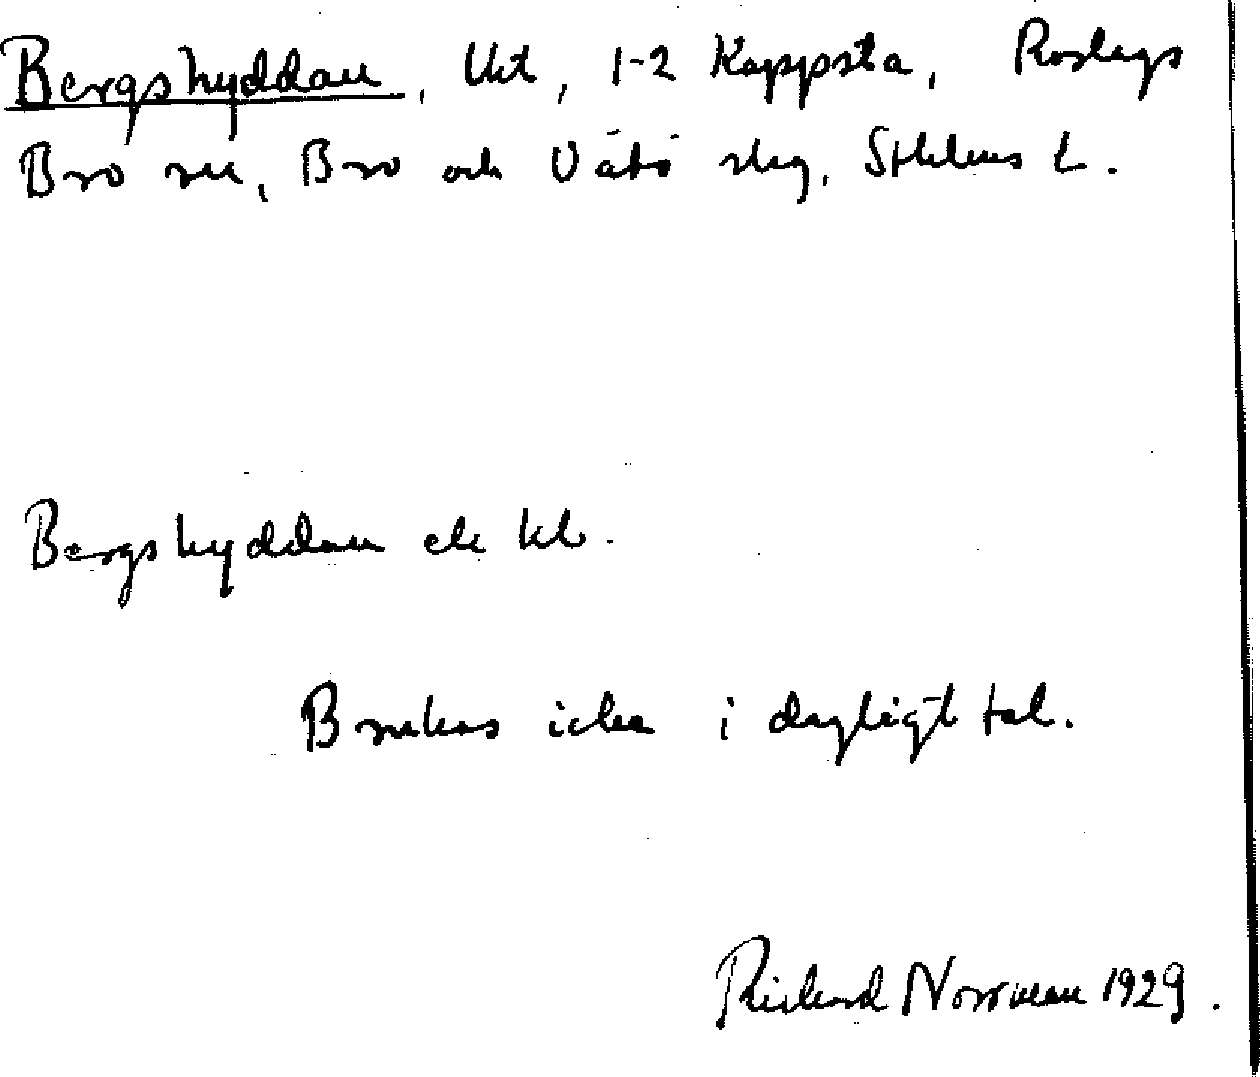 Bergshyddan, Ukt, 1-2 Kappsta, Roslags
Bro sn, Bro och Vätö skg, Sthlms l.
Bergshyddan ek kl.
Brukas icke i dagligt tal.
Rickard Norrman 1929.